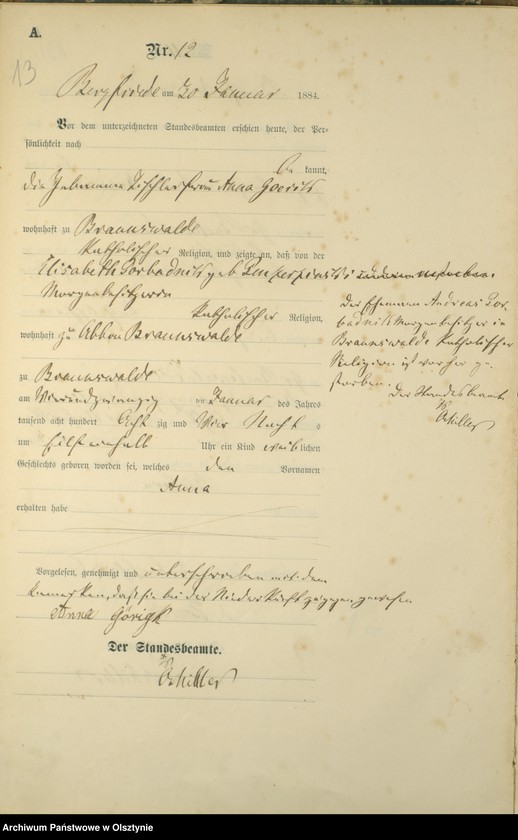 A.
Nr. 12
13
Bergfriede am 30 Januar 1884.
Vor dem unterzeichneten Standesbeamten erschien heute, der Per-
sönlichkeit nach
be kannt,
die Hebamme Tischlerfrau Anna Goerick
wohnhaft zu Braunswalde
katholischer Religion, und zeigte an, daß von der
Elisabeth geb
Morgenbesitzerin
katholischer Religion,
wohnhaft zu Abbau Braunswalde
zu Braunswalde
am Vierundzwanzig ten Januar des Jahres
tausend acht hundert Acht zig und Vier Nachts
um Eilf einhalb Uhr ein Kind weib lichen
Geschlechts geboren worden sei, welches den Vornamen
Anna
erhalten habe
Vorgelesen, genehmigt und unterschrieben mit dem
Bemerken, daß sie bei der Niederkunft zugegen gewesen
Anna Görigk
Der Standesbeamte.
Schiller
Der Ehemann Andreas Gor-
badnik Morgenbesitzer in
Braunswalde katholischer
Religion ist vorher ge-
storben.
Der Standesbeamte
Schiller
Archiwum Państwowe w Olsztynie